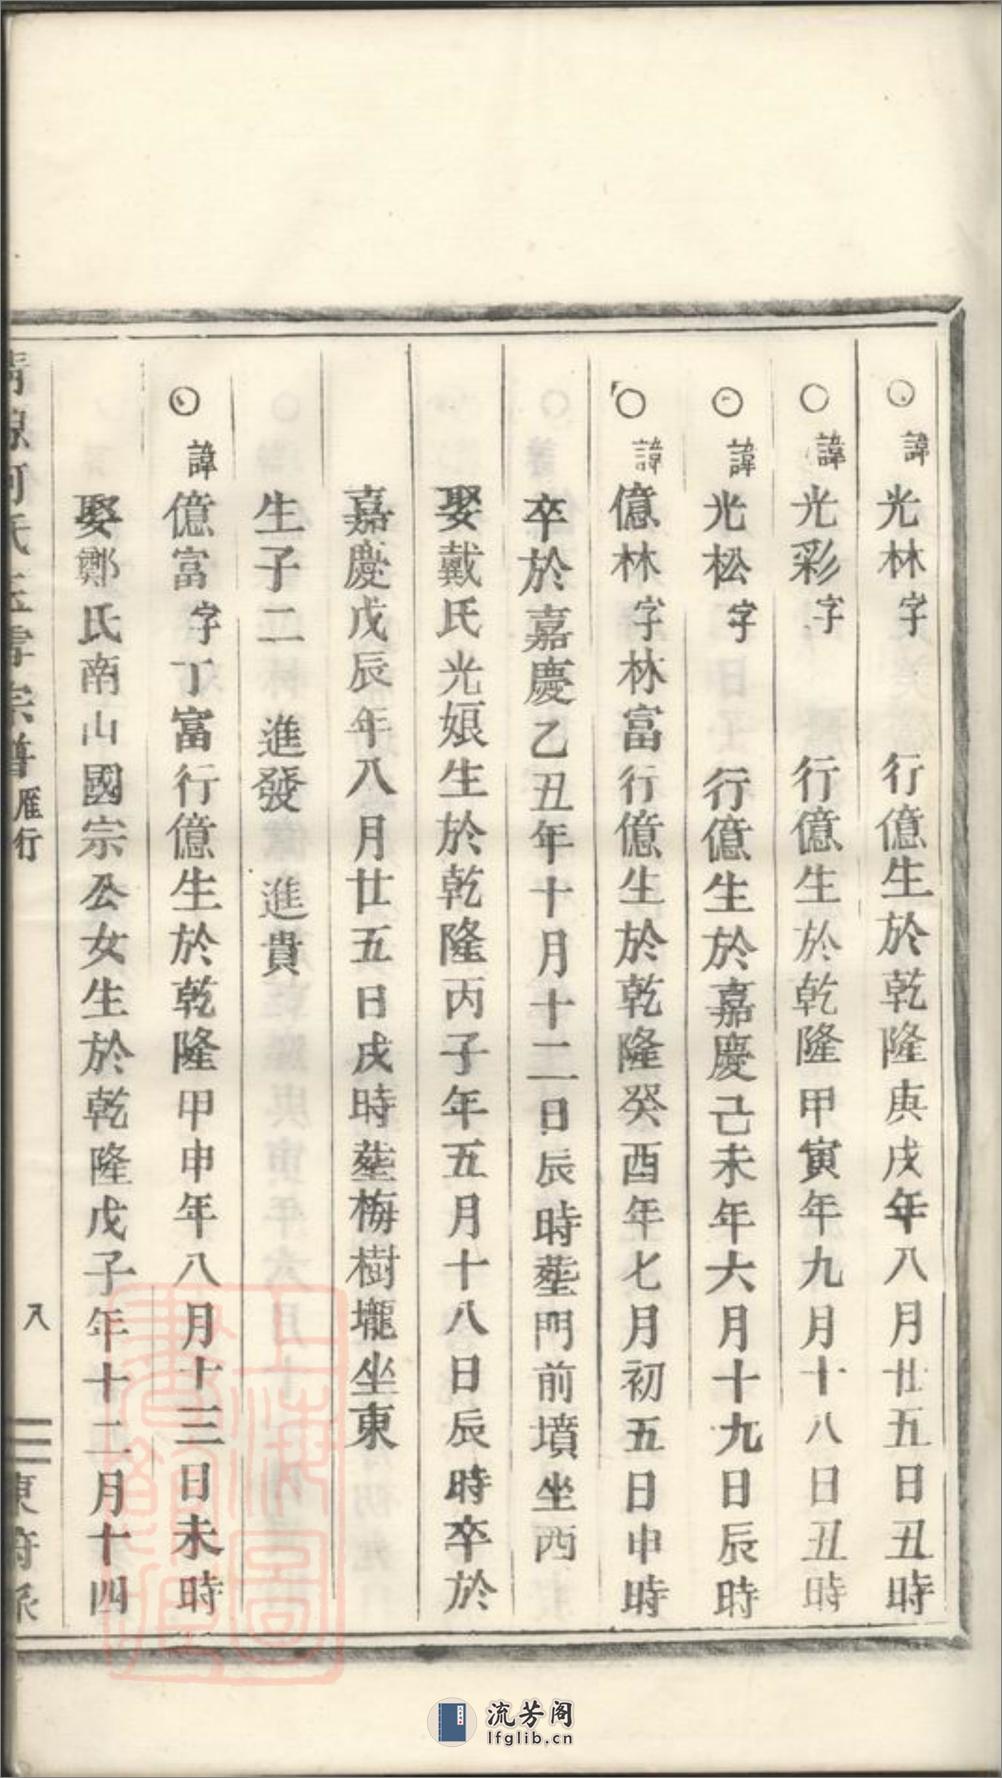 ○諱光林字 行億生於乾隆庚戌年八月廿五日丑時
○諱光彩字 行億生於乾隆甲寅年九月十八日丑時
○諱光松字 行億生於嘉慶己未年六月十九日辰時
○諱億林字林富行億生於乾隆癸酉年七月初五日申時
卒於嘉慶乙丑年十月十二日辰時塟門前墳坐西
娶戴氏光娘生於乾隆丙子年五月十八日辰時卒於
嘉慶戊辰年八月廿五日戌時塟梅樹壠坐東
生子二 進發 進貴
○諱億富字丁富行億生於乾隆甲申年八月十三日未時
娶鄭氏南山國宗公女生於乾隆戊子年十二月十四
氏 宗譜 雁行 八 東 派
上海圖書館藏
流芳阁
lfglib.cn